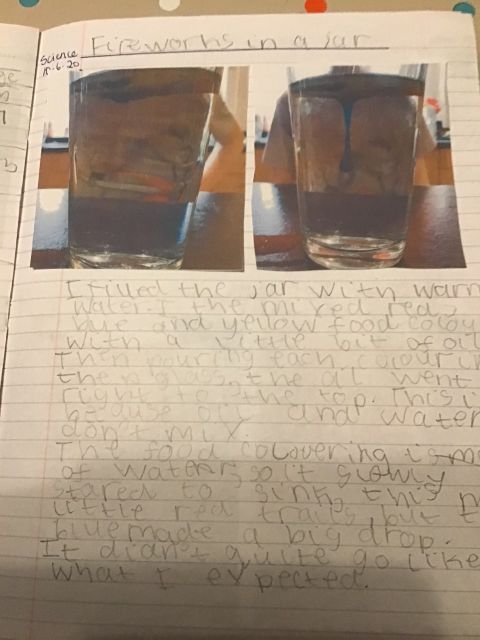 Science
15-6-20
Fireworks in a jar
I filled the jar with warm
water. I the mixed red,
blue and yellow food colou
with a little bit of oil
Then pouring each colour in
the glass, the oil went
right to the top. This i
because oil and water
don't mix.
The food colovering is
of water, so it slowly
stared to sink, this m
little red trails but t
blue made a big drop.
It didn't quite go like
what I expected.